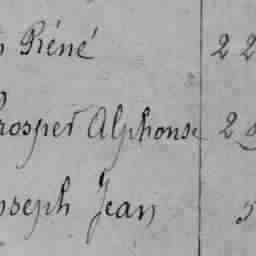 Réné 22
Prosper Alphonse 2
Joseph Jean